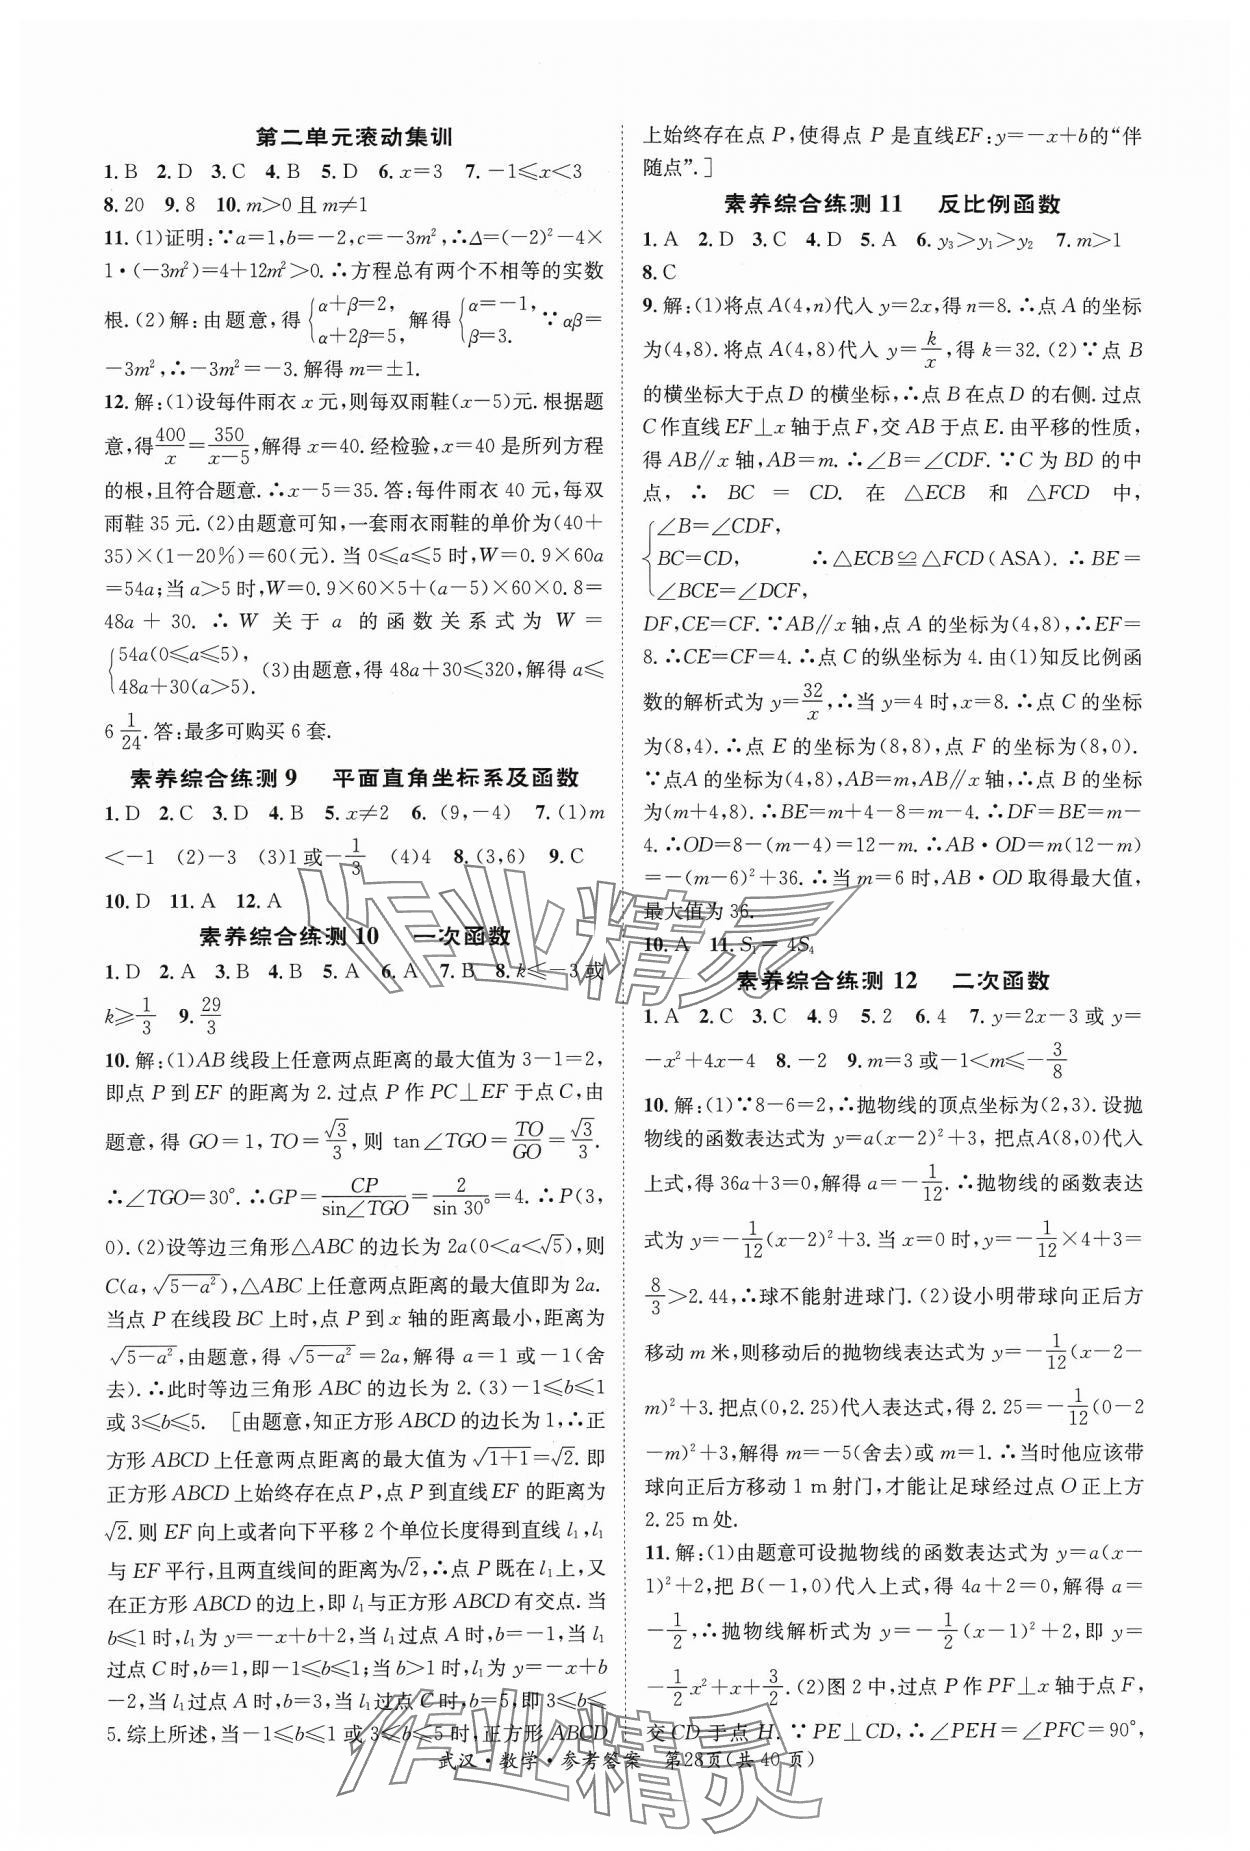 第二单元滚动集训
1. B  2. D  3. C  4. B  5. D  6. x=3  7. -1≤x<3
8. 20  9. 8  10. m>0 且 m≠1
11. (1)证明:∵a=1,b=-2,c=-3m²,∴Δ=(-2)²-4×
1·(-3m²)=4+12m²>0.∴方程总有两个不相等的实数
根.(2)解:由题意,得{α+β=2, α+2β=5, 解得{α=-1, β=3. ∵αβ=
-3m²,∴-3m²=-3.解得m=±1.
12. 解:(1)设每件雨衣x元,则每双雨鞋(x-5)元.根据题
意,得400/x=350/(x-5),解得x=40.经检验,x=40是所列方程
的根,且符合题意.∴x-5=35.答:每件雨衣40元,每双
雨鞋35元.(2)由题意可知,一套雨衣雨鞋的单价为(40+
35)×(1-20%)=60(元).当0≤a≤5时,W=0.9×60a
=54a;当a>5时,W=0.9×60×5+(a-5)×60×0.8=
48a+30.∴W关于a的函数关系式为W=
{54a(0≤a≤5), 48a+30(a>5). (3)由题意,得48a+30≤320,解得a≤
6 1/24.答:最多可购买6套.
素养综合练测9  平面直角坐标系及函数
1. D  2. C  3. D  4. B  5. x≠2  6. (9,-4)  7. (1)m
<-1  (2)-3  (3)1或-1/3  (4)4  8. (3,6)  9. C
10. D  11. A  12. A
素养综合练测10  一次函数
1. D  2. A  3. B  4. B  5. A  6. A  7. B  8. k≤-3或
k≥1/3  9. 29/3
10. 解:(1)AB线段上任意两点距离的最大值为3-1=2,
即点P到EF的距离为2.过点P作PC⊥EF于点C,由
题意,得GO=1,TO=√3/3,则tan∠TGO=TO/GO=√3/3.
∴∠TGO=30°.∴GP=CP/sin∠TGO=2/sin 30°=4.∴P(3,
0).(2)设等边三角形△ABC的边长为2a(0<a<√5),则
C(a,√(5-a²)),△ABC上任意两点距离的最大值即为2a.
当点P在线段BC上时,点P到x轴的距离最小,距离为
√(5-a²),由题意,得√(5-a²)=2a,解得a=1或-1(舍
去).∴此时等边三角形ABC的边长为2.(3)-1≤b≤1
或3≤b≤5.  [由题意,知正方形ABCD的边长为1,∴正
方形ABCD上任意两点距离的最大值为√(1+1)=√2.即
正方形ABCD上始终存在点P,点P到直线EF的距离为
√2.则EF向上或者向下平移2个单位长度得到直线l₁,l₁
与EF平行,且两直线间的距离为√2,∴点P既在l₁上,又
在正方形ABCD的边上,即l₁与正方形ABCD有交点.当
b≤1时,l₁为y=-x+b+2,当l₁过点A时,b=-1,当l₁
过点C时,b=1,即-1≤b≤1;当b>1时,l₁为y=-x+b
-2,当l₁过点A时,b=3,当l₁过点C时,b=5,即3≤b≤
5.综上所述,当-1≤b≤1或3≤b≤5时,正方形ABCD
上始终存在点P,使得点P是直线EF:y=-x+b的“伴
随点”.]
素养综合练测11  反比例函数
1. A  2. D  3. C  4. D  5. A  6. y₃>y₁>y₂  7. m>1
8. C
9. 解:(1)将点A(4,n)代入y=2x,得n=8.∴点A的坐标
为(4,8).将点A(4,8)代入y=k/x,得k=32.(2)∵点B
的横坐标大于点D的横坐标,∴点B在点D的右侧.过点
C作直线EF⊥x轴于点F,交AB于点E.由平移的性质,
得AB∥x轴,AB=m.∴∠B=∠CDF.∵C为BD的中
点,∴BC=CD.在△ECB和△FCD中,
{∠B=∠CDF,
BC=CD,  ∴△ECB≌△FCD(ASA).∴BE=
∠BCE=∠DCF,
DF,CE=CF.∵AB∥x轴,点A的坐标为(4,8),∴EF=
8.∴CE=CF=4.∴点C的纵坐标为4.由(1)知反比例函
数的解析式为y=32/x,∴当y=4时,x=8.∴点C的坐标
为(8,4).∴点E的坐标为(8,8),点F的坐标为(8,0).
∵点A的坐标为(4,8),AB=m,AB∥x轴,∴点B的坐标
为(m+4,8).∴BE=m+4-8=m-4.∴DF=BE=m-
4.∴OD=8-(m-4)=12-m.∴AB·OD=m(12-m)
=-(m-6)²+36.∴当m=6时,AB·OD取得最大值,
最大值为36.
10. A  11. S₁=4S₄
素养综合练测12  二次函数
1. A  2. C  3. C  4. 9  5. 2  6. 4  7. y=2x-3或y=
-x²+4x-4  8. -2  9. m=3或-1<m≤-3/8
10. 解:(1)∵8-6=2,∴抛物线的顶点坐标为(2,3).设抛
物线的函数表达式为y=a(x-2)²+3,把点A(8,0)代入
上式,得36a+3=0,解得a=-1/12.∴抛物线的函数表达
式为y=-1/12(x-2)²+3.当x=0时,y=-1/12×4+3=
8/3>2.44,∴球不能射进球门.(2)设小明带球向正后方
移动m米,则移动后的抛物线表达式为y=-1/12(x-2-
m)²+3.把点(0,2.25)代入表达式,得2.25=-1/12(0-2
-m)²+3,解得m=-5(舍去)或m=1.∴当时他应该带
球向正后方移动1 m射门,才能让足球经过点O正上方
2.25 m处.
11. 解:(1)由题意可设抛物线的函数表达式为y=a(x-
1)²+2,把B(-1,0)代入上式,得4a+2=0,解得a=
-1/2,∴抛物线解析式为y=-1/2(x-1)²+2,即y=
-1/2x²+x+3/2.(2)图2中,过点P作PF⊥x轴于点F,
交CD于点H.∵PE⊥CD,∴∠PEH=∠PFC=90°,
武汉·数学·参考答案  第28页(共40页)
作业精灵
作业精灵